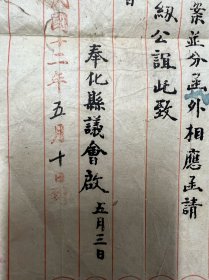 案並分函外相應函請
紉公誼此致
奉化縣議會啟 五月三日
年五月十日到